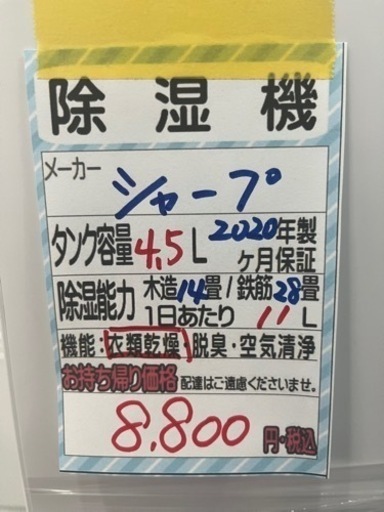 除湿機
メーカー
シャープ
タンク容量 4.5L 2020年製
ヶ月保証
除湿能力 木造14畳/鉄筋28畳
1日あたり 11L
機能:衣類乾燥・脱臭・空気清浄
お持ち帰り価格 配達はご遠慮くださいませ。
8,800円・税込